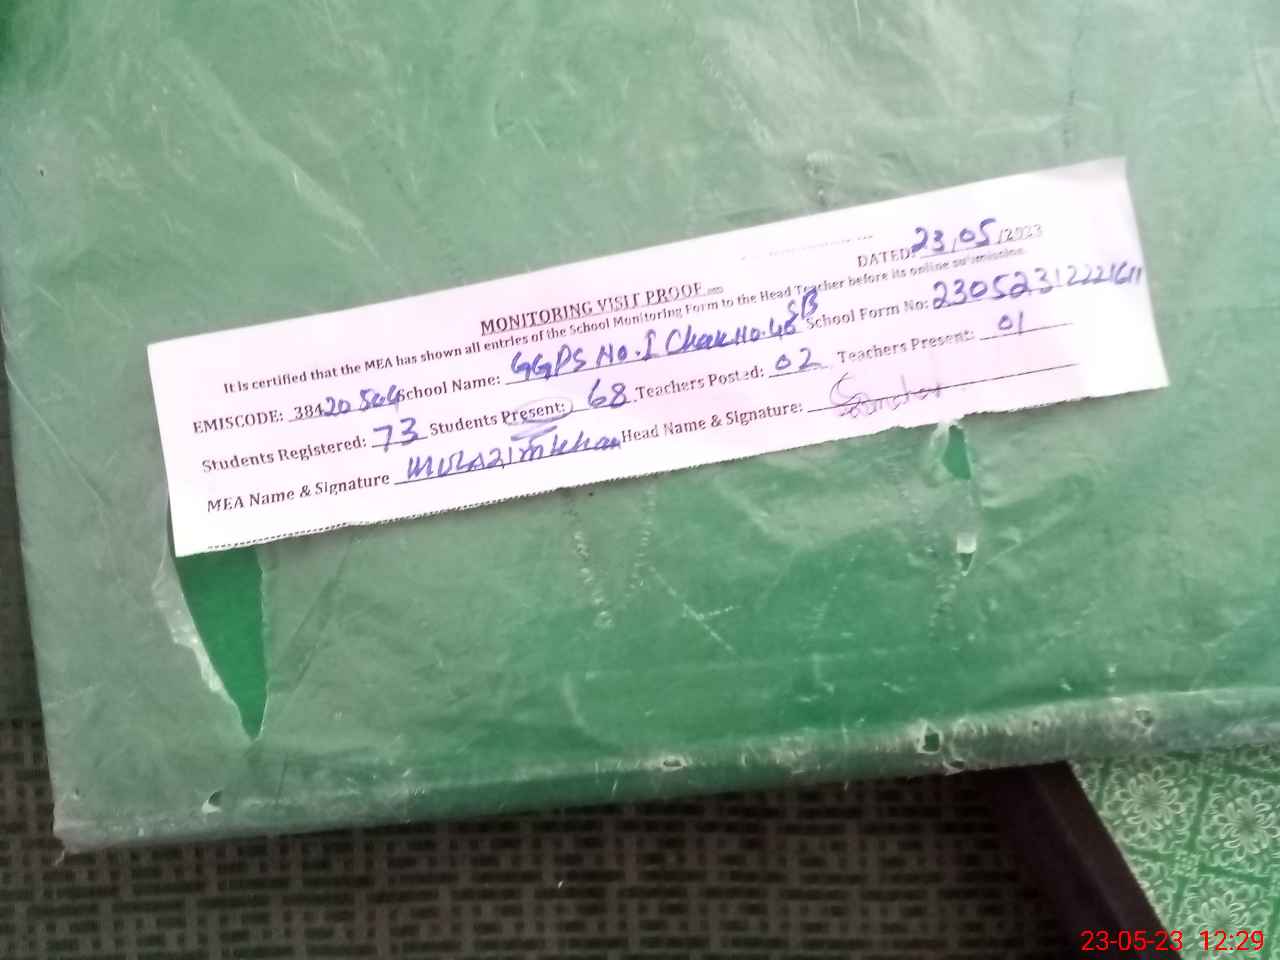 DATED: 23/05/2023
MONITORING VISIT PROOF
It is certified that the MEA has shown all entries of the School Monitoring Form to the Head Teacher before its online submission.
EMISCODE: 38420504 School Name: GGPS No.1 Chak No.46 SB School Form No: 23052312221611
Students Registered: 73 Students Present: 68 Teachers Posted: 02 Teachers Present: 01
MEA Name & Signature Mulazim Khan Head Name & Signature:
23-05-23 12:29